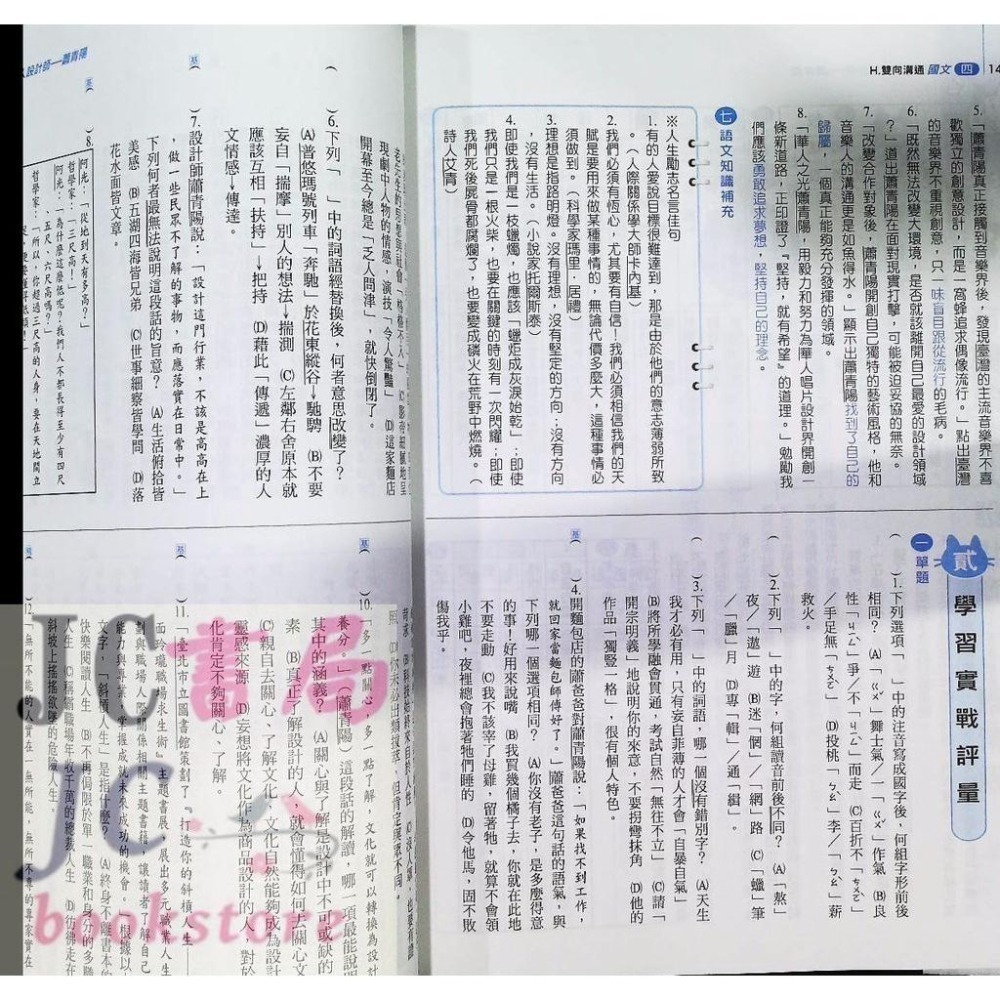 H.雙向溝通 國文 四 14
5.「蕭青陽真正接觸到音樂界後,發現臺灣的主流音樂界不喜
歡獨立的創意設計,而是一窩蜂追求偶像流行。」點出臺灣
的音樂界不重視創意,只一味盲目跟從流行的毛病。
6.「既然無法改變大環境,是否就該離開自己最愛的設計領域
?」道出蕭青陽在面對現實打擊,可能被迫妥協的無奈。
7.「改變合作對象後,蕭青陽開創自己獨特的藝術風格,他和
音樂人的溝通更是如魚得水。」顯示出蕭青陽找到了自己的
歸屬,一個真正能夠充分發揮的領域。
8.「華人之光蕭青陽,用毅力和努力為華人唱片設計界開創一
條新道路,正印證了『堅持,就有希望』的道理。」勉勵我
們應該勇敢追求夢想,堅持自己的理念。
七 語文知識補充
※人生勵志名言佳句
1.有的人愛說目標很難達到,那是由於他們的意志薄弱所致
。(人際關係學大師卡內基)
2.我們必須有恆心,尤其要有自信!我們必須相信我們的天
賦是要用來做某種事情的,無論代價多麼大,這種事情必
須做到。(科學家瑪里.居禮)
3.理想是指路明燈。沒有理想,沒有堅定的方向;沒有方向
,沒有生活。(小說家托爾斯泰)
4.即使我們是一枝蠟燭,也應該「蠟炬成灰淚始乾」;即使
我們只是一根火柴,也要在關鍵的時刻有一次閃耀;即使
我們死後屍骨都腐爛了,也要變成磷火在荒野中燃燒。(
詩人艾青)
貳 學習實戰評量
一 單題
( )1.下列選項「 」中的注音寫成國字後,何組字形前後
相同? (A)「ㄍㄨˇ」舞士氣/一「ㄍㄨˇ」作氣 (B)良
性「ㄐㄧㄥˋ」爭/不「ㄐㄧㄥˋ」而走 (C)百折不「ㄋㄠˊ」
/手足無「ㄘㄨㄛˋ」 (D)投桃「ㄅㄠˋ」李/「ㄅㄠˋ」薪
救火。
( )2.下列「 」中的字,何組讀音前後不同? (A)「熬」
夜/「遨」遊 (B)迷「惘」/「網」路 (C)「蠟」筆
/「臘」月 (D)專「輯」/通「緝」。
( )3.下列「 」中的詞語,哪一個沒有錯別字? (A)天生
我才必有用,只有妄自菲薄的人才會「自暴自氣」
(B)將所學融會貫通,考試自然「無往不立」 (C)請「
開宗明義」地說明你的來意,不要拐彎抹角 (D)他的
作品「獨豎一格」,很有個人特色。
基( )4.開麵包店的蕭爸爸對蕭青陽說:「如果找不到工作,
就回家當麵包師傅好了。」蕭爸爸這句話的語氣,與
下列哪一個選項相同? (A)你沒有老子,是多麼得意
的事!好用來說嘴 (B)我買幾個橘子去,你就在此地
不要走動 (C)我不該宰了母雞,留著牠,就算不會領
小雞吧,夜裡總會抱著牠們睡的 (D)令他馬,固不敗
傷我乎。
設計師──蕭青陽
現劇中人物的情感,演技「令人驚豔」 (D)這家麵店
開幕至今總是「乏人問津」,就快倒閉了。
( )6.下列「 」中的詞語經替換後,何者意思改變了?
(A)普悠瑪號列車「奔馳」於花東縱谷→馳騁 (B)不要
妄自「揣摩」別人的想法→揣測 (C)左鄰右舍原本就
應該互相「扶持」→把持 (D)藉此「傳遞」濃厚的人
文情感→傳達。
基( )7.設計師蕭青陽說:「設計這門行業,不該是高高在上
,做一些民眾不了解的事物,而應落實在日常中。」
下列何者最無法說明這段話的旨意? (A)生活俯拾皆
美感 (B)五湖四海皆兄弟 (C)世事細察皆學問 (D)落
花水面皆文章。
基( )8.
阿光:「從地到天有多高?」
哲學家:「三尺高!」
阿光:「為什麼這麼低呢?我們人不都長得至少有四尺
、五尺、六尺高嗎?」
哲學家:「所以,你超過三尺高的人身,要在天地間立
基( )10.「多一點關心,多一點了解,文化就可以轉換為設計
養分。」(蕭青陽)這段話的解讀,哪一項最能說明
其中的涵義? (A)關心與了解是設計中不可或缺的
素 (B)真正了解設計的人,就會懂得如何去關心文
(C)親自去關心、了解文化,文化自然能夠成為設計
靈感來源 (D)妄想將文化作為商品設計的人,對於
化肯定不夠關心、了解。
基( )11.「臺北市立圖書館策劃了『打造你的斜槓人生
面玲瓏職場求生術』主題書展,展出多元職業人生
劃與職場人際關係相關主題書籍,讓讀者了解自己
能力與專業,掌握成就未來成功的機會。」根據以
文字,「斜槓人生」是指什麼? (A)終身不離書本的
快樂閱讀人生 (B)不再侷限於單一職業和身分的多職
人生 (C)稱霸職場年收千萬的總裁人生 (D)彷彿走在
斜坡上搖搖欲墜的危險人生。
( )12.「無所不能的人實在一無所能,無所不專的專家實在
JC書局
JC
bookstore